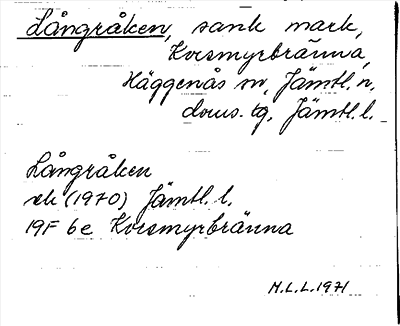 Långråken, sank mark,
Korsmyrbränna,
Häggenås sn, Jämtl. n.
doms. tg, Jämtl. l.
Långråken
ek (1970) Jämtl. l.
19F 6e Korsmyrbränna
M.L.L. 1971